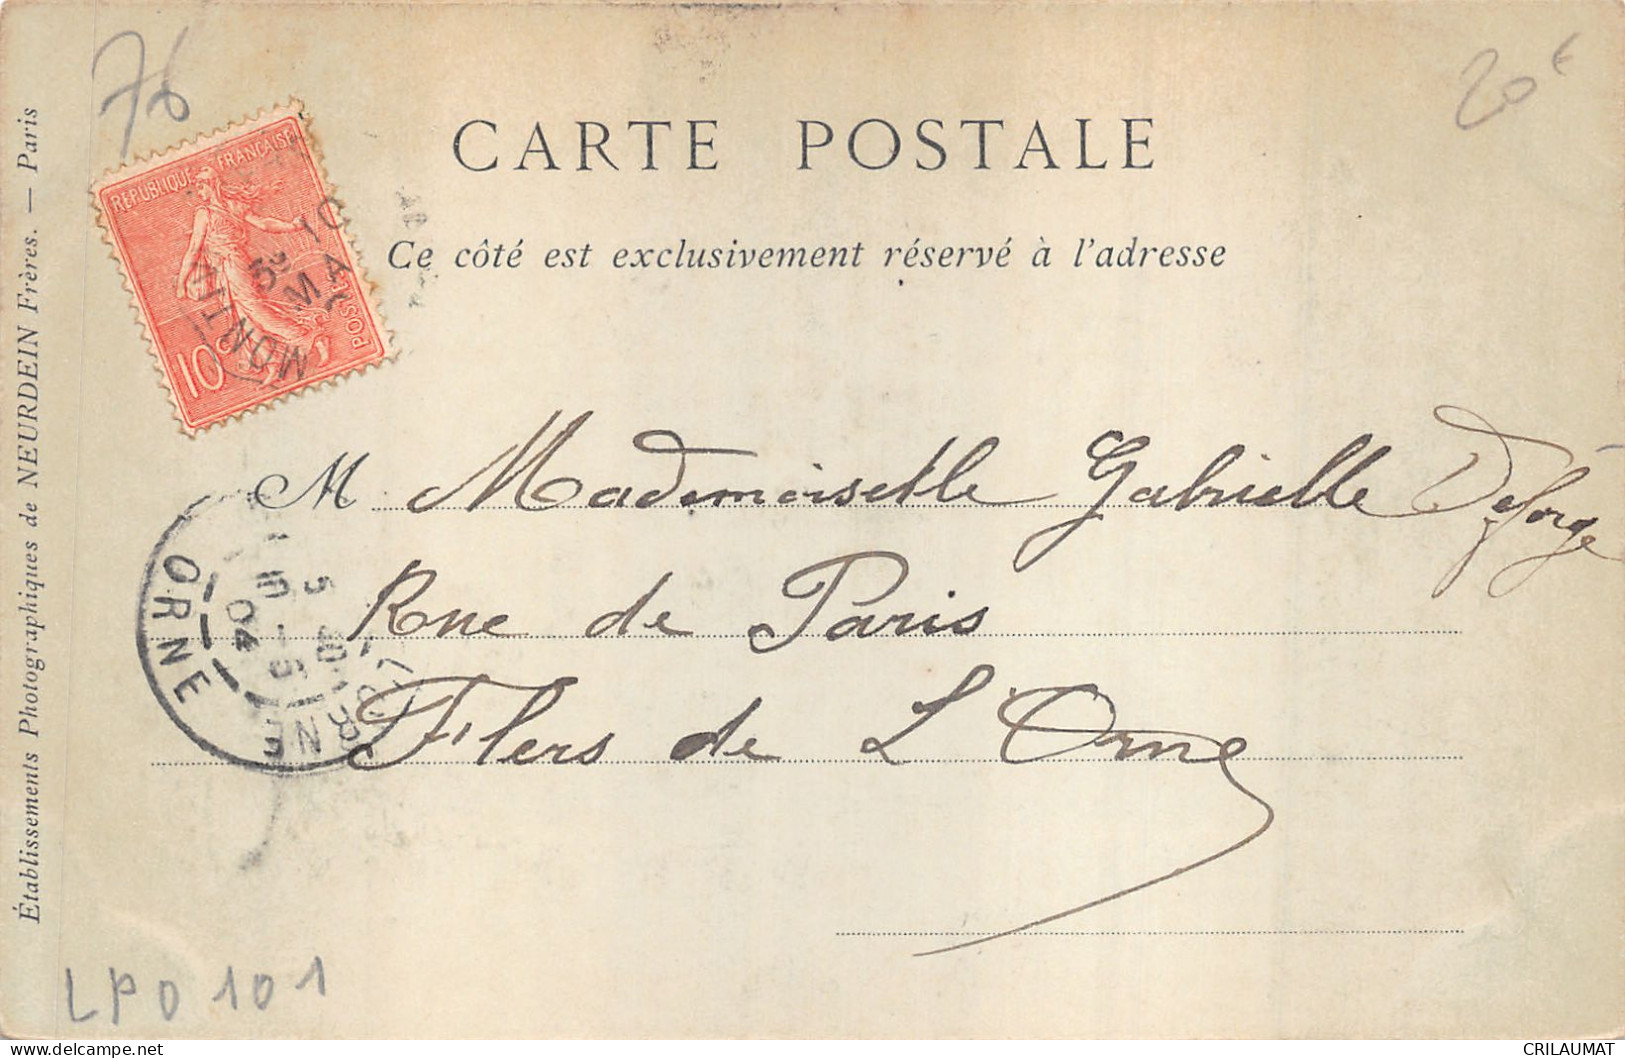 76
20€
RÉPUBLIQUE FRANÇAISE
POSTES
10c
CARTE POSTALE
Ce côté est exclusivement réservé à l'adresse
M. Mademoiselle Gabrielle Deforge
Rue de Paris
Flers de L'Orne
ORNE
5
04
ORNE
LPO 101
Établissements Photographiques de NEURDEIN Frères. — Paris
CRILAUMAT